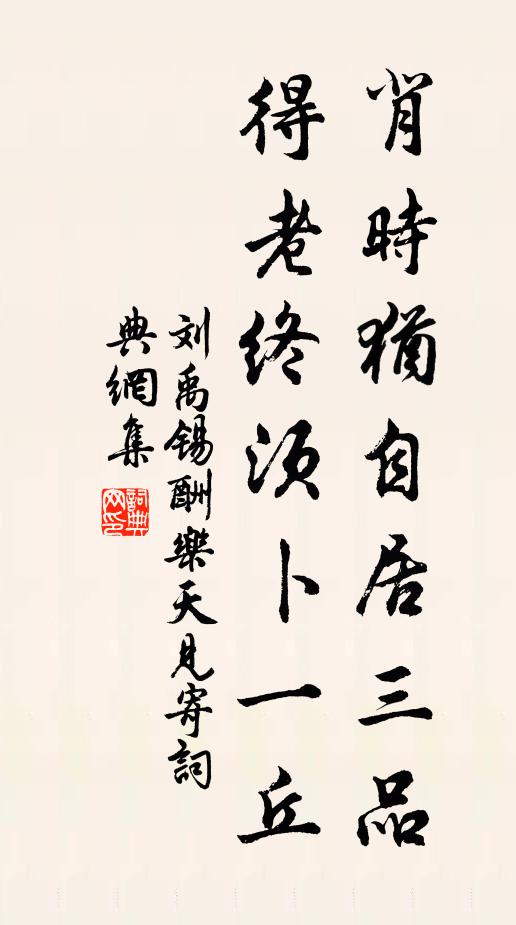 背時猶自居三品
得老終須卜一丘
刘禹锡酬樂天見寄詞
典網集
詞典
网印